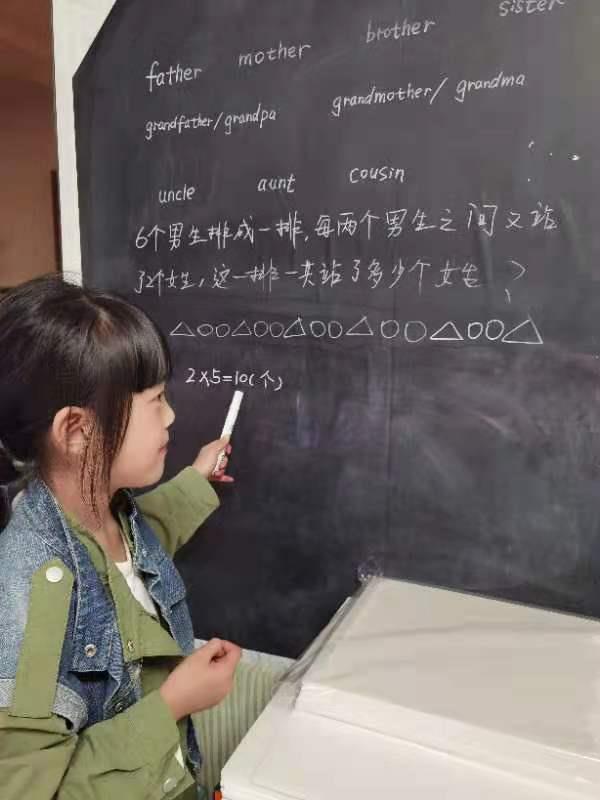 sister
father mother brother
grandfather/grandpa grandmother/ grandma
uncle aunt cousin
6个男生排成一排,每两个男生之间又站
了2个女生,这一排一共站了多少个女生?
2×5=10(个)